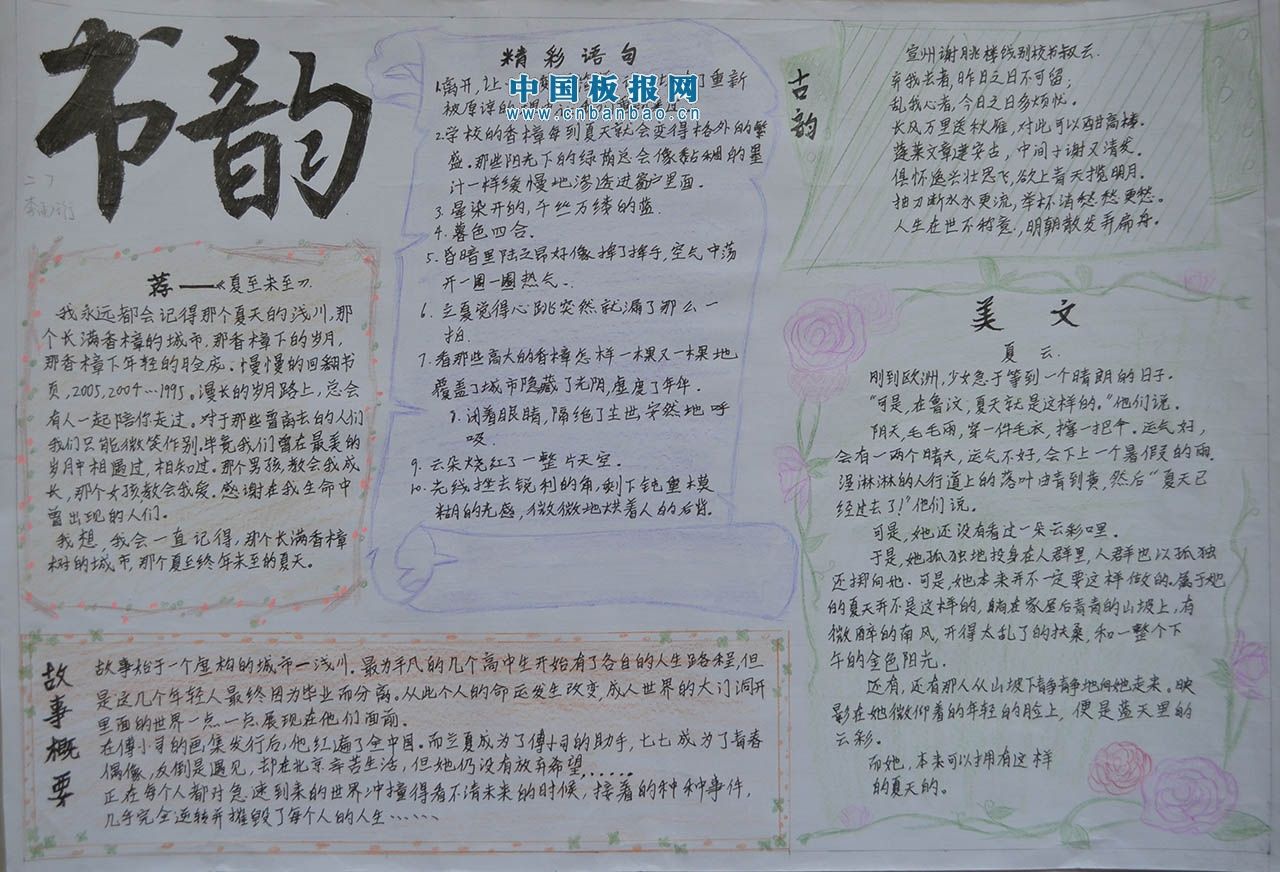 书韵
二
精彩语句
中国板报网
www.cnbanbao.cn
1.离开,让
重新
被原谅的
2.学校的香樟每到夏天就会变得格外的繁
盛。那些阳光下的绿荫总会像黏稠的墨
汁一样缓慢地渗透进窗户里面.
3.晕染开的,千丝万缕的蓝.
4.暮色四合。
5.昏暗里陆之昂好像挥了挥手,空气中荡
开一圈一圈热气.
6.立夏觉得心跳突然就漏了那么一
拍.
7.看那些高大的香樟怎样一棵又一棵地
覆盖了城市隐藏了光阴,虚度了年华.
8.闭着眼睛,隔绝了尘世安然地呼
吸.
9.云朵烧红了一整片天空.
10.光线挫去锐利的角,剩下钝重模
糊的光感,微微地烘着人的后背.
古韵
宣州谢朓楼饯别校书叔云.
弃我去者,昨日之日不可留;
乱我心者,今日之日多烦忧.
长风万里送秋雁,对此可以酣高楼.
蓬莱文章建安古,中间小谢又清发.
俱怀逸兴壮思飞,欲上青天揽明月.
抽刀断水水更流,举杯消愁愁更愁.
人生在世不称意,明朝散发弄扁舟.
荐——《夏至未至》
我永远都会记得那个夏天的浅川,那
个长满香樟的城市,那香樟下的岁月,
那香樟下年轻的脸庞.慢慢的回翻书
页,2005,2004…1995.漫长的岁月路上,总会
有人一起陪你走过.对于那些曾离去的人们
我们只能微笑作别.毕竟我们曾在最美的
岁月中相遇过,相知过.那个男孩,教会我成
长,那个女孩教会我爱.感谢在我生命中
曾出现的人们.
我想,我会一直记得,那个长满香樟
树的城市,那个夏至终年未至的夏天。
美文
夏云.
刚到欧洲,少女急于等到一个晴朗的日子.
“可是,在鲁汶,夏天就是这样的.”他们说.
阴天,毛毛雨,穿一件毛衣,撑一把伞.运气好,
会有一两个晴天,运气不好,会下上一个暑假的雨
湿淋淋的人行道上的落叶由青到黄,然后“夏天已
经过去了!”他们说.
可是,她还没有看过一朵云彩哩.
于是,她孤独地投身在人群里,人群也以孤独
还掷向她.可是,她本来并不一定要这样做的.属于她
的夏天并不是这样的,躺在家屋后青青的山坡上,有
微醉的南风,开得太乱了的扶桑,和一整个下
午的金色阳光.
还有,还有那人从山坡下静静地向她走来.映
影在她微仰着的年轻的脸上,便是蓝天里的
云彩.
而她,本来可以拥有这样
的夏天的.
故事概要
故事始于一个虚构的城市—浅川.最为平凡的几个高中生开始有了各自的人生路程,但
是这几个年轻人最终因为毕业而分离.从此个人的命运发生改变,成人世界的大门洞开
里面的世界一点一点展现在他们面前.
在傅小司的画集发行后,他红遍了全中国.而立夏成为了傅小司的助手,七七成为了青春
偶像,反倒是遇见,却在北京辛苦生活,但她仍没有放弃希望......
正在每个人都对急速到来的世界冲撞得看不清未来的时候,接着的种种事件,
几乎完全逆转并摧毁了每个人的人生……